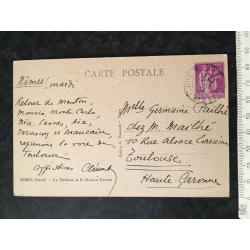 CARTE POSTALE
Nîmes, mardi
Retour de Menton,
Monaco, Monte Carlo
Nice, Cannes, Aix,
Tarascon et Beaucaire
reprenons la voie de
Toulouse
Affectueux Clément
NIMES (Gard) - Le Théâtre et la Maison Carrée
Melle Germaine Pailhé
chez M. Mailhé
10 Rue Alsace Lorraine
Toulouse
Haute Garonne